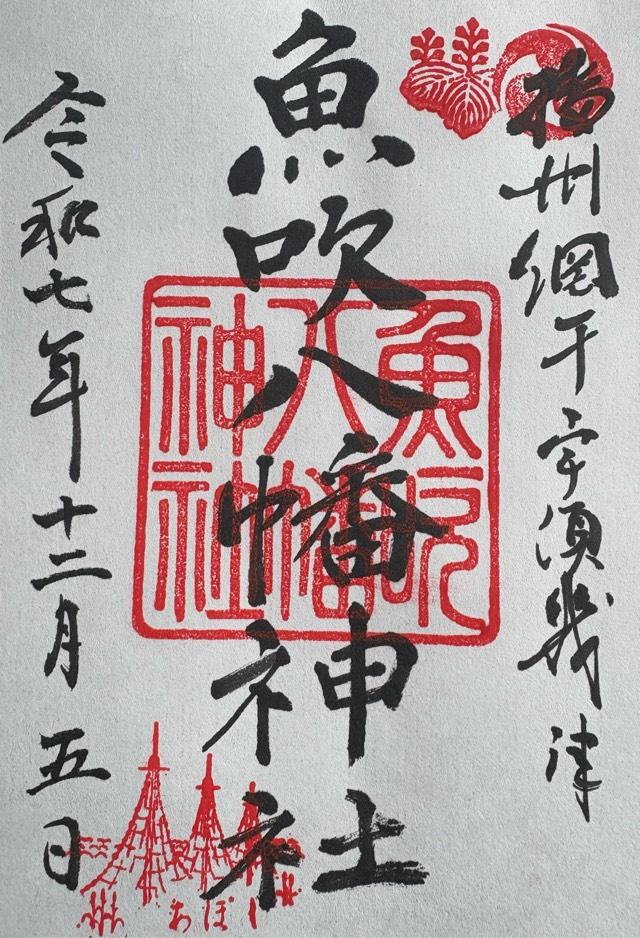 播州網干宇須幾津
魚吹八幡神社
魚吹
八幡
神社
令和七年十二月五日
あぼし